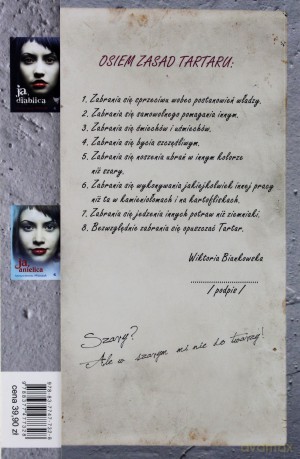 ja
diablica
ja
anielica
OSIEM ZASAD TARTARU:
1. Zabrania się sprzeciwu wobec postanowień władzy.
2. Zabrania się samowolnego pomagania innym.
3. Zabrania się śmiechów i uśmiechów.
4. Zabrania się bycia szczęśliwym.
5. Zabrania się noszenia ubrań w innym kolorze
niż szary.
6. Zabrania się wykonywania jakiejkolwiek innej pracy
niż ta w kamieniołomach i na kartofliskach.
7. Zabrania się jedzenia innych potraw niż ziemniaki.
8. Bezwzględnie zabrania się opuszczać Tartar.
Wiktoria Biankowska
/ podpis /
Szary?
Ale w szarym mi nie do twarzy!
cena 39,90 zł